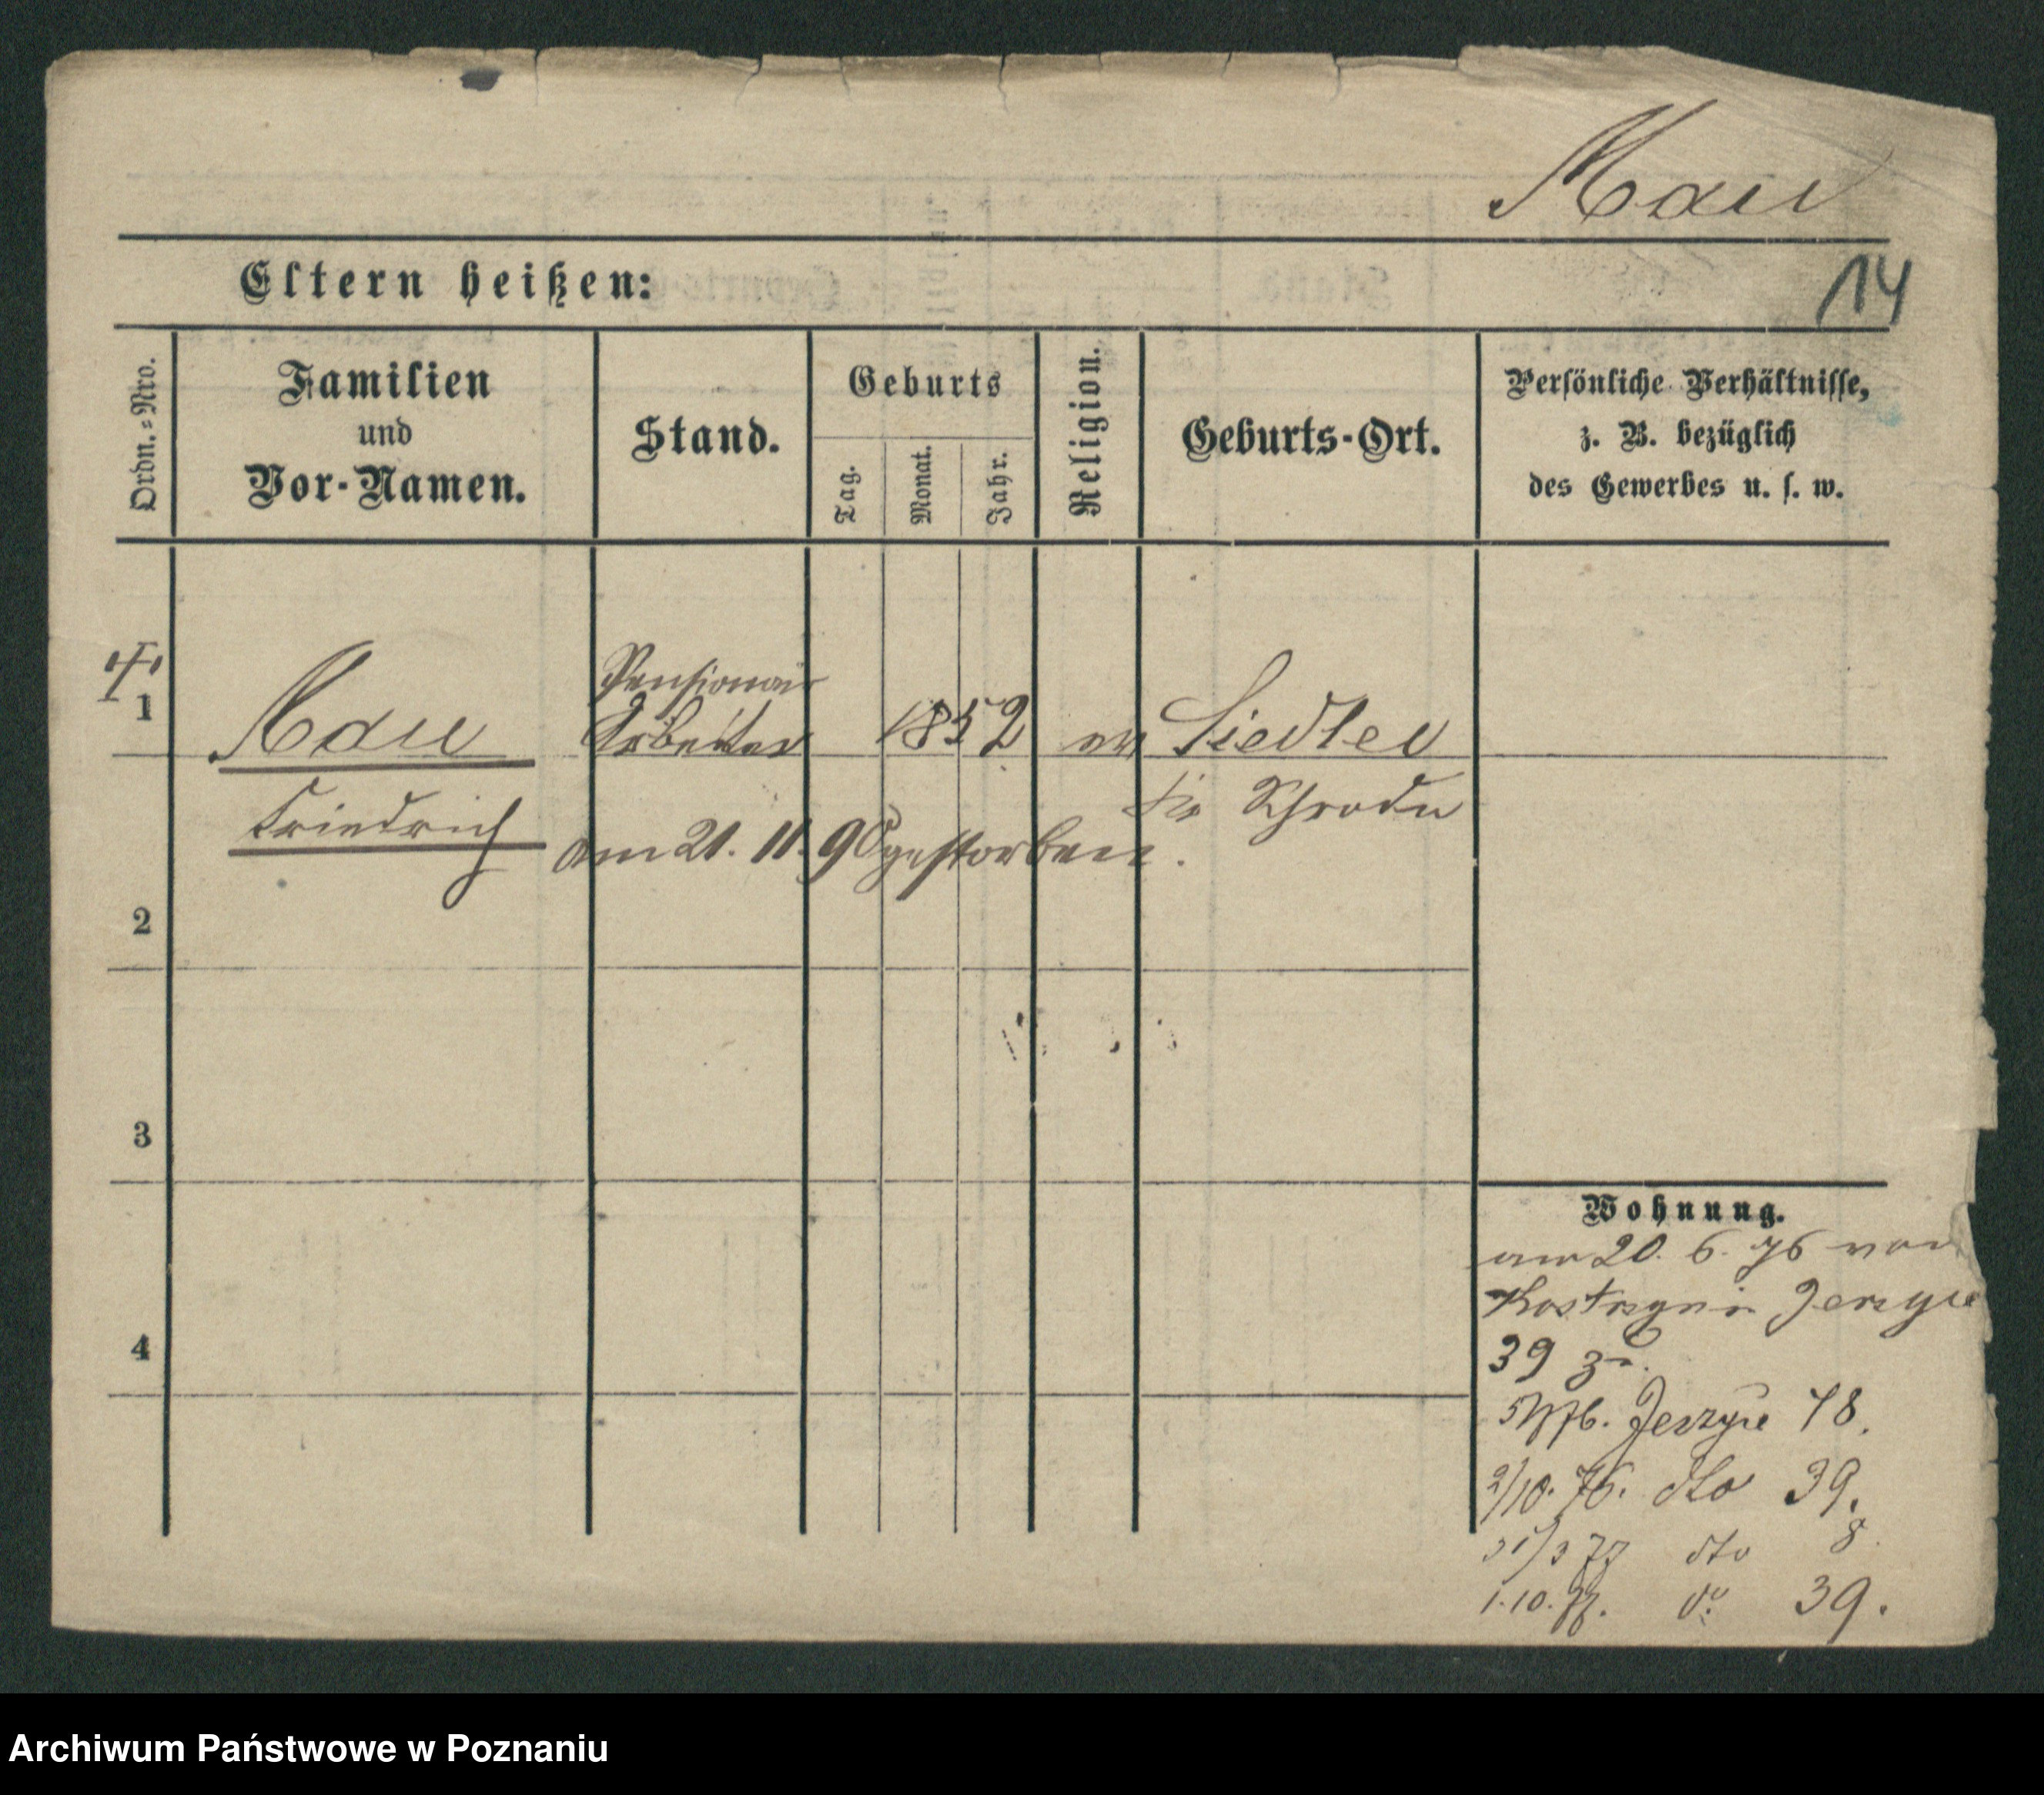 Mau
14
Eltern heißen:
Ordn.-Nro.
Familien
und
Vor-Namen.
Stand.
Geburts
Tag.
Monat.
Jahr.
Religion.
Geburts-Ort.
Persönliche Verhältnisse,
z. B. bezüglich
des Gewerbes u. s. w.
1
Mau
Pensionair
Arbeiter
1852
ev
Siedlec
Friedrich
Kr Schroda
am 21. 11. 90 gestorben.
2
3
4
Wohnung.
am 20. 6. 76 von
Kostrzyn in Jerzyce
39 
Jerzyce 78.
2/10. 76. dto 39.
31/3 77 dto 8.
1.10.77. do 39.
Archiwum Państwowe w Poznaniu